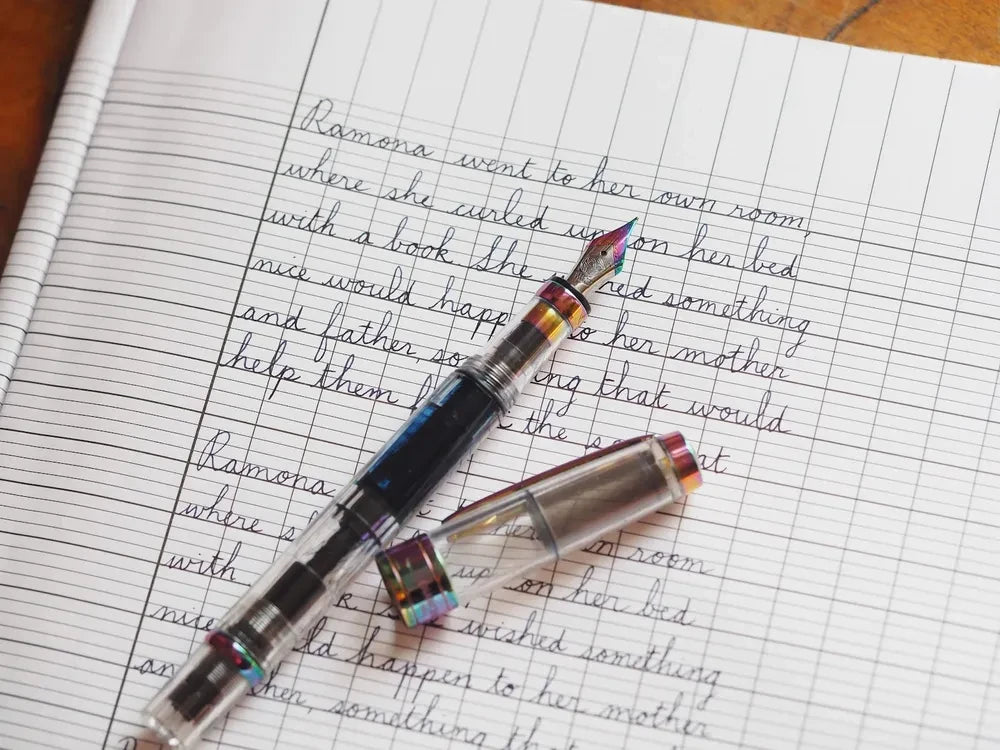 Ramona went to her own room,
where she curled up on her bed
with a book She something
nice would to her mother
and father, that would
help them the
Ramona
where in room
with up on her bed
wished something
nice happen to her mother
something that